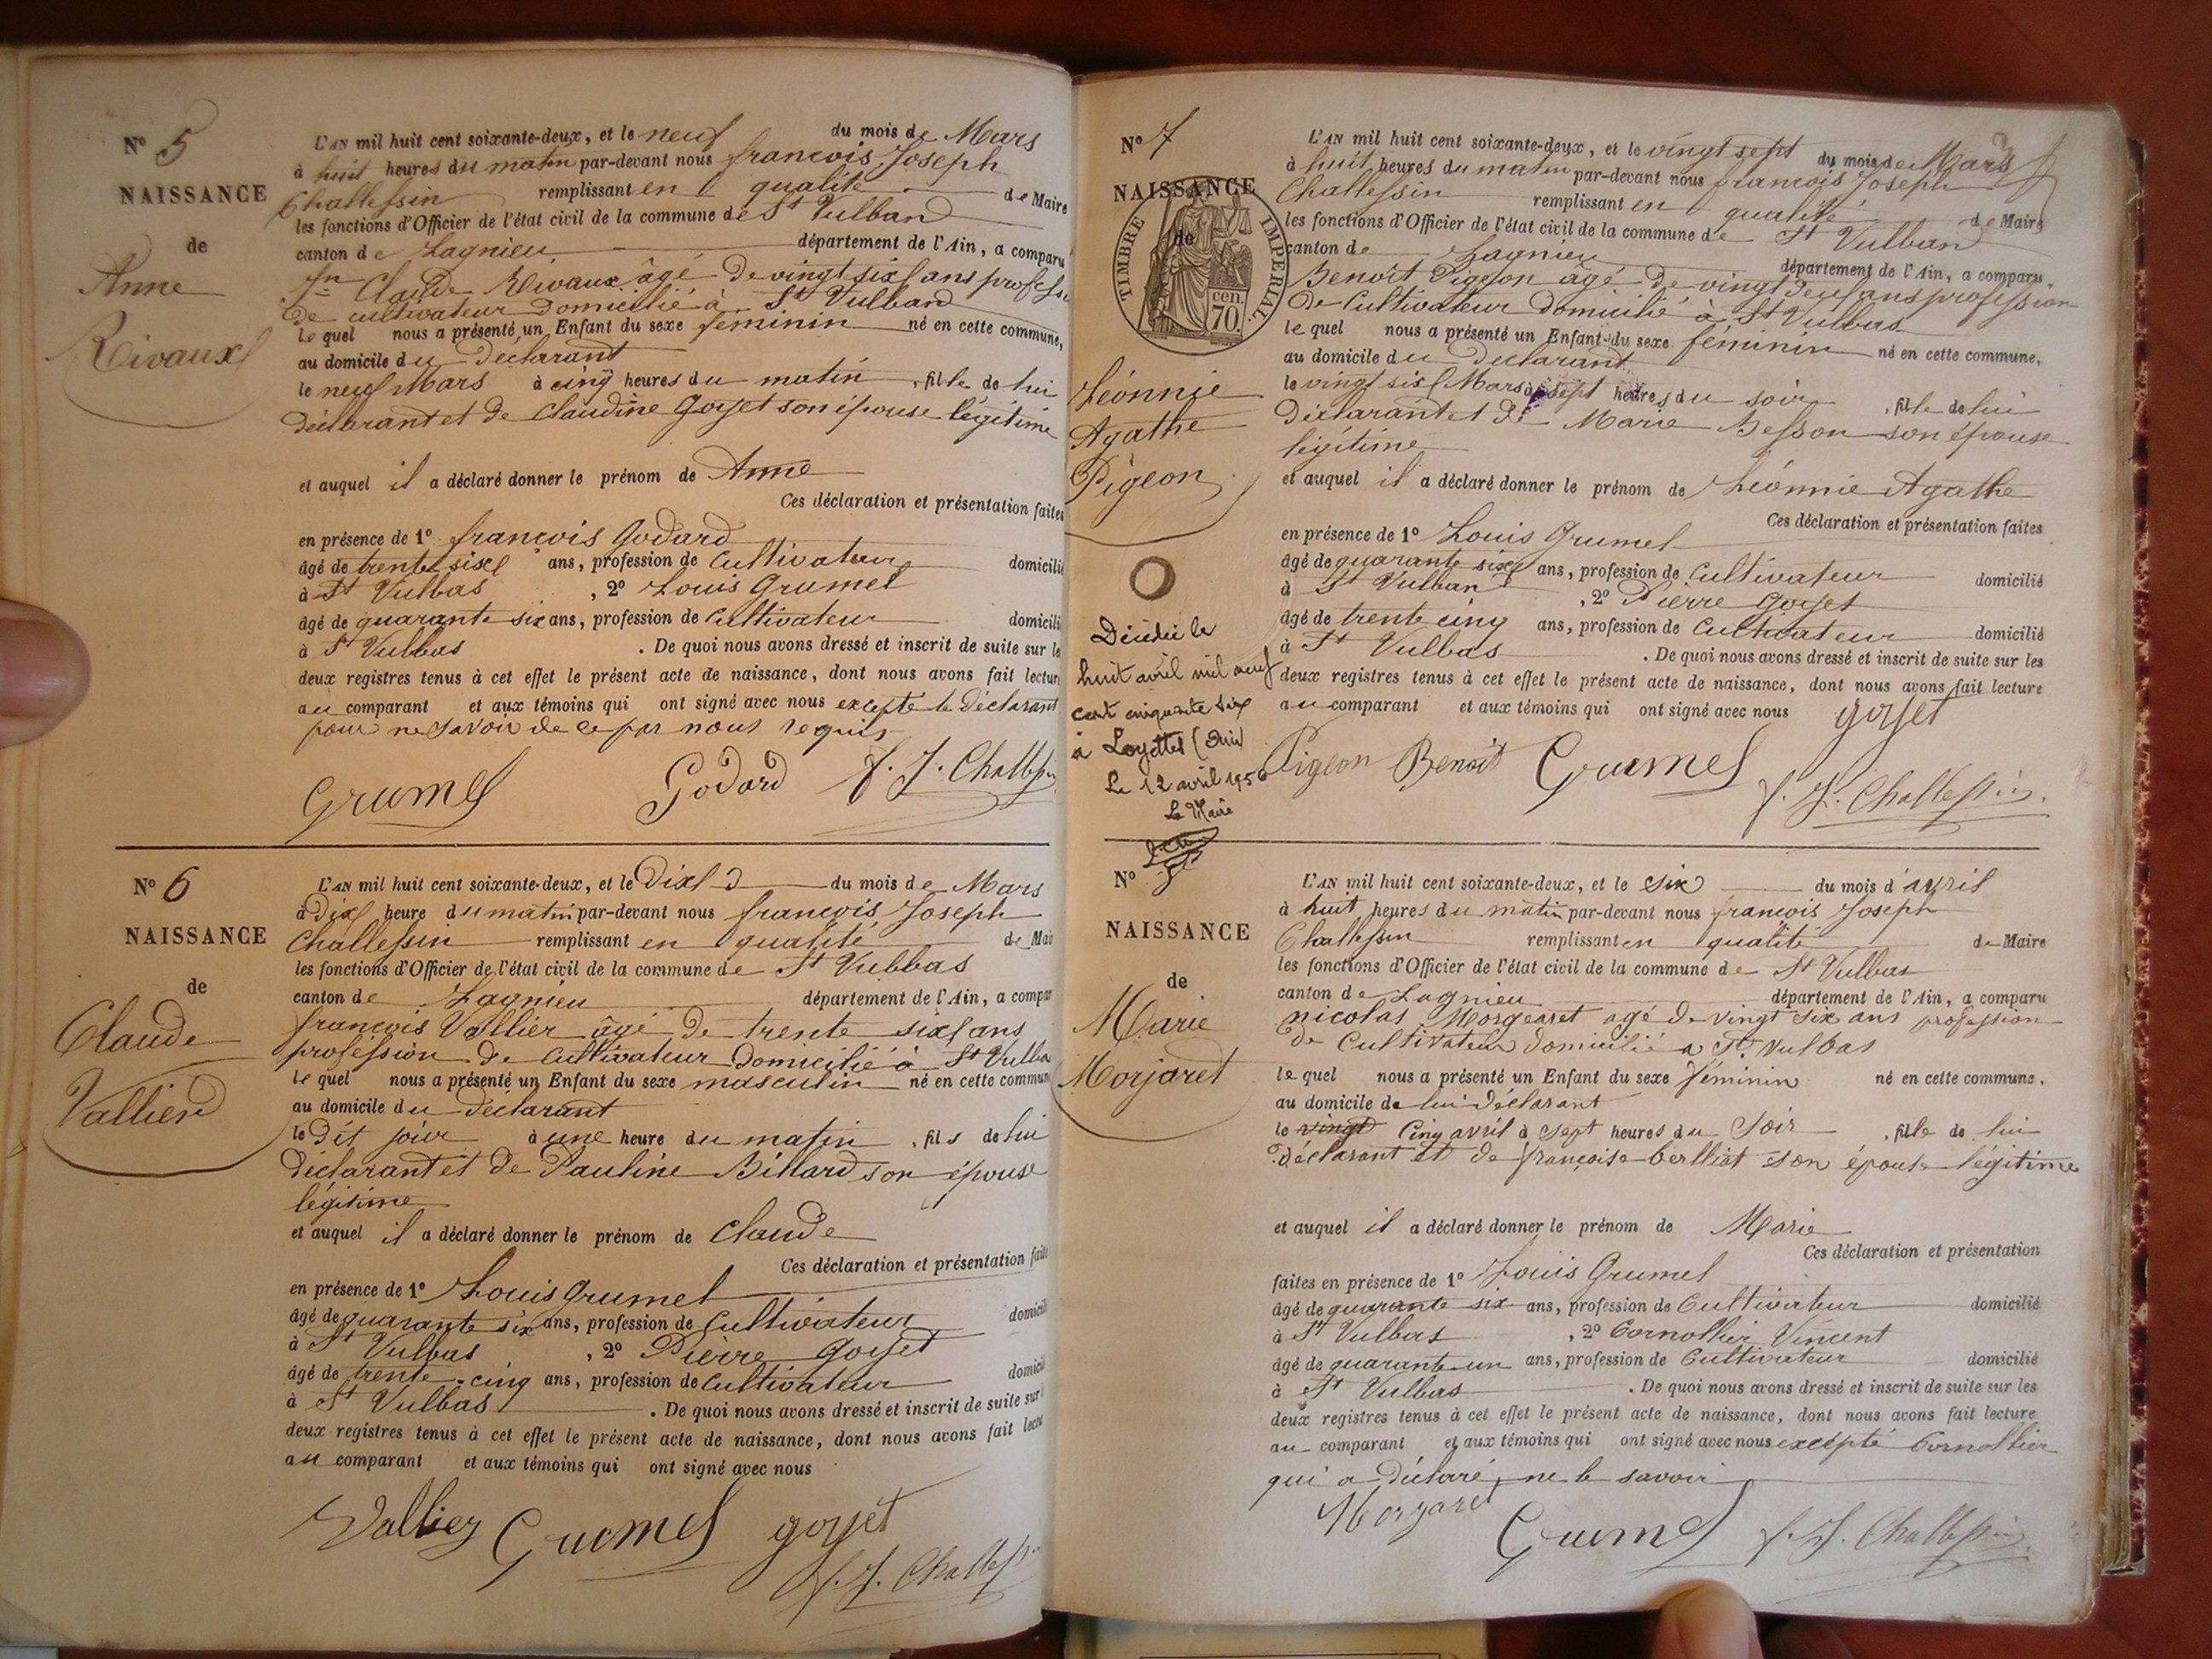 N° 5
NAISSANCE
de
Anne
Rivaux
L'AN mil huit cent soixante-deux, et le neuf du mois de Mars
à huit heures du matin par-devant nous françois Joseph
Challessin remplissant en qualité de Maire
les fonctions d'Officier de l'état civil de la commune de St Vulban
canton de Lagnieu département de l'Ain, a comparu
Jn Claude Rivaux âgé de vingt six ans profession
de cultivateur domicilié à St Vulban
le quel nous a présenté un Enfant du sexe féminin né en cette commune,
au domicile du declarant
le neuf Mars à cinq heures du matin, fille de lui
déclarant et de Claudine Goyet son épouse légitime
et auquel il a déclaré donner le prénom de Anne
Ces déclaration et présentation faites
en présence de 1° françois Godard
âgé de trente six ans, profession de Cultivateur domicilié
à St Vulbas, 2° Louis Grumel
âgé de quarante six ans, profession de Cultivateur domicili
à St Vulbas. De quoi nous avons dressé et inscrit de suite sur le
deux registres tenus à cet effet le présent acte de naissance, dont nous avons fait lecture
au comparant et aux témoins qui ont signé avec nous excepté le déclarant
pour ne savoir de ce par nous requis
Grumel Godard f. J. Challessin
N° 6
NAISSANCE
de
Claude
Vallier
L'AN mil huit cent soixante-deux, et le Dix du mois de Mars
à Dix heure du matin par-devant nous françois Joseph
Challessin remplissant en qualité de Mai
les fonctions d'Officier de l'état civil de la commune de St Vulbas
canton de Lagnieu département de l'Ain, a compar
françois Vallier âgé de trente six ans
profession de Cultivateur domicilié à St Vulba
le quel nous a présenté un Enfant du sexe masculin né en cette commun
au domicile du déclarant
le dit jour à une heure du matin, fils de lui
déclarant et de Pauline Billard son épouse
légitime
et auquel il a déclaré donner le prénom de Claude
Ces déclaration et présentation faite
en présence de 1° Louis Grumel
âgé de quarante six ans, profession de Cultivateur domicili
à St Vulbas, 2° Pierre Goyet
âgé de trente-cinq ans, profession de Cultivateur domicili
à St Vulbas. De quoi nous avons dressé et inscrit de suite sur
deux registres tenus à cet effet le présent acte de naissance, dont nous avons fait lectu
au comparant et aux témoins qui ont signé avec nous
Vallier Grumel goyet
f. J. Challessin
N° 7
NAISSANCE
de
TIMBRE IMPERIAL
cen. 70.
Léonnie
Agathe
Pigeon
Décédée le
huit avril mil neuf
cent cinquante six
à Loyettes (Ain)
Le 12 avril 1956
Le Maire
L'AN mil huit cent soixante-deux, et le vingt sept du mois de Mars
à huit heures du matin par-devant nous françois Joseph
Challessin remplissant en qualité de Maire
les fonctions d'Officier de l'état civil de la commune de St Vulban
canton de Lagnieu département de l'Ain, a comparu,
Benoit Pigeon agé de vingt neuf ans profession
De Cultivateur domicilié à St Vulbas
le quel nous a présenté un Enfant du sexe féminin né en cette commune,
au domicile du declarant
le vingt six Mars à sept heures du soir, fille de lui
Déclarant et de Marie Besson son épouse
légitime
et auquel il a déclaré donner le prénom de Léonnie Agathe
Ces déclaration et présentation faites
en présence de 1° Louis Grumel
âgé de quarante six ans, profession de Cultivateur domicilié
à St Vulban, 2° Pierre Goyet
âgé de trente cinq ans, profession de Cultivateur domicilié
à St Vulbas. De quoi nous avons dressé et inscrit de suite sur les
deux registres tenus à cet effet le présent acte de naissance, dont nous avons fait lecture
au comparant et aux témoins qui ont signé avec nous goyet
Pigeon Benoit Grumel
f. J. Challessin.
N° 8
NAISSANCE
de
Marie
Morjaret
L'AN mil huit cent soixante-deux, et le six du mois d'avril
à huit heures du matin par-devant nous françois Joseph
Challessin remplissant en qualité de Maire
les fonctions d'Officier de l'état civil de la commune de St Vulbas
canton de Lagnieu département de l'Ain, a comparu
nicolas Morgearet agé de vingt six ans profession
de Cultivateur domicilié a St Vulbas
le quel nous a présenté un Enfant du sexe féminin né en cette commune,
au domicile de lui déclarant
le vingt Cinq avril à sept heures du Soir, fille de lui
déclarant et de françoise berlliat son épouse légitime
et auquel il a déclaré donner le prénom de Marie
Ces déclaration et présentation
faites en présence de 1° Louis Grumel
âgé de quarante six ans, profession de Cultivateur domicilié
à St Vulbas, 2° Cornollier Vincent
âgé de quarante un ans, profession de Cultivateur domicilié
à St Vulbas. De quoi nous avons dressé et inscrit de suite sur les
deux registres tenus à cet effet le présent acte de naissance, dont nous avons fait lecture
au comparant et aux témoins qui ont signé avec nous excépté Cornollier
qui a déclaré ne le savoir
Morgaret Grumel f. J. Challessin